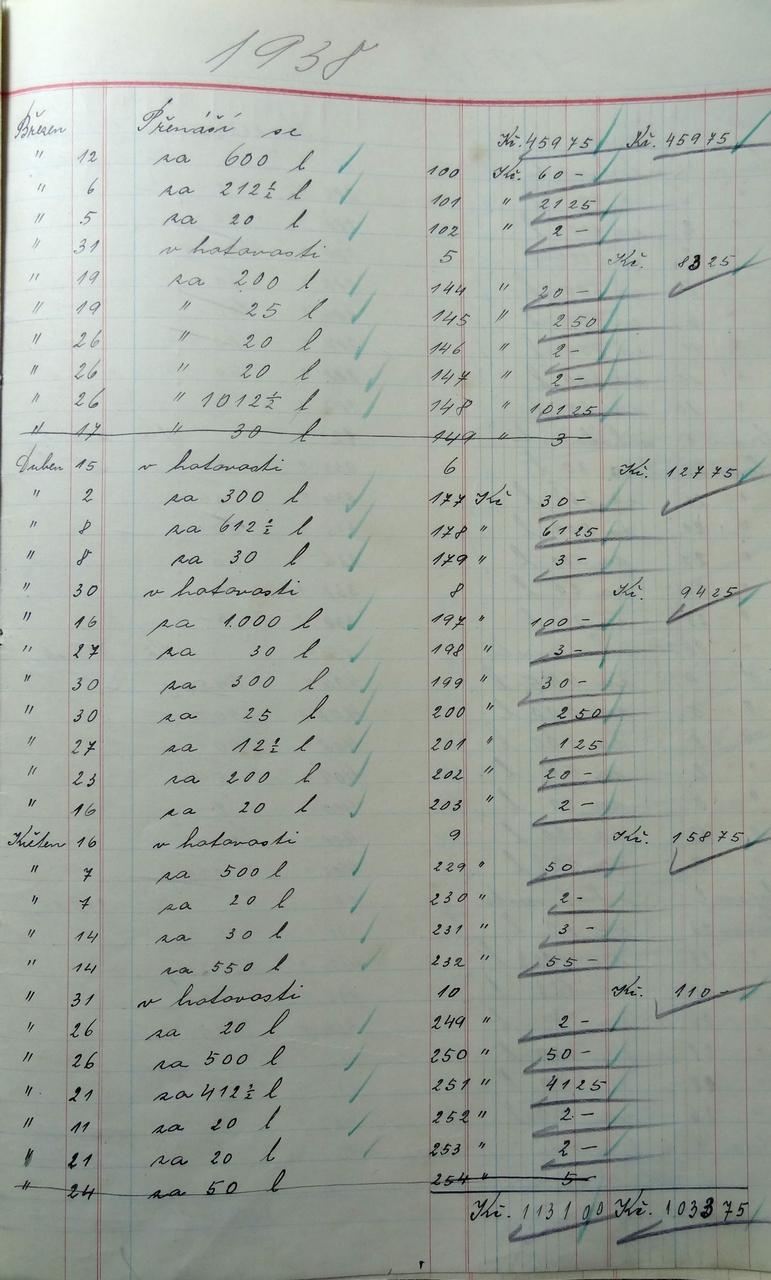 1938
Březen Přenáší se Kč. 459 75 Kč. 459 75
" 12 za 600 l 100 Kč. 60 -
" 6 za 212 ½ l 101 " 21 25
" 5 za 20 l 102 " 2 -
" 31 v hotovosti 5 Kč. 83 25
" 19 za 200 l 144 " 20 -
" 19 " 25 l 145 " 2 50
" 26 " 20 l 146 " 2 -
" 26 " 20 l 147 " 2 -
" 26 " 1012 ½ l 148 " 101 25
" 17 " 30 l 149 " 3 -
Duben 15 v hotovosti 6 Kč. 127 75
" 2 za 300 l 177 Kč 30 -
" 8 za 612 ½ l 178 " 61 25
" 8 za 30 l 179 " 3 -
" 30 v hotovosti 8 Kč. 94 25
" 16 za 1.000 l 197 " 100 -
" 27 za 30 l 198 " 3 -
" 30 za 300 l 199 " 30 -
" 30 za 25 l 200 " 2 50
" 27 za 12 ½ l 201 " 1 25
" 23 za 200 l 202 " 20 -
" 16 za 20 l 203 " 2 -
Květen 16 v hotovosti 9 Kč. 158 75
" 7 za 500 l 229 " 50
" 7 za 20 l 230 " 2 -
" 14 za 30 l 231 " 3 -
" 14 za 550 l 232 " 55 -
" 31 v hotovosti 10 Kč. 110 -
" 26 za 20 l 249 " 2 -
" 26 za 500 l 250 " 50 -
" 21 za 412 ½ l 251 " 41 25
" 11 za 20 l 252 " 2 -
" 21 za 20 l 253 " 2 -
" 24 za 50 l 254 " 5 -
Kč. 1131 00 Kč. 1033 75